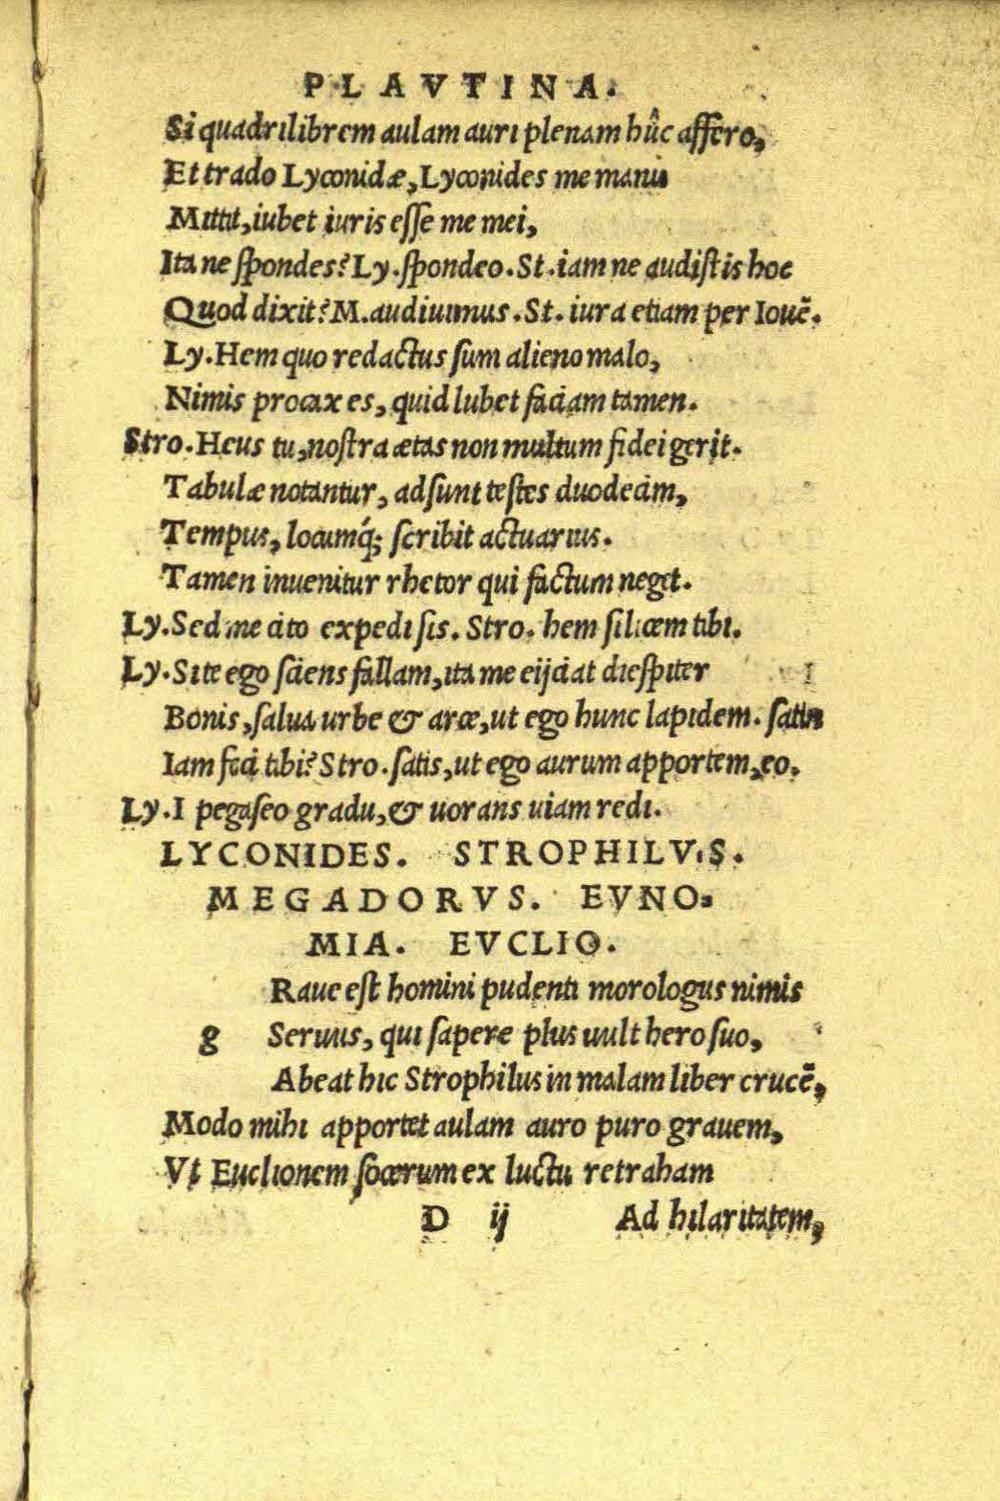 PLAVTINA.
Si quadrilibrem aulam auri plenam hûc affero,
Et trado Lyconidæ, Lyconides me manu
Mittit, iubet iuris esse me mei,
Ita ne spondes? Ly. spondeo. St. iam ne audistis hoc
Quod dixit? M. audiuimus. St. iura etiam per Iouē.
Ly. Hem quo redactus sum alieno malo,
Nimis procax es, quid lubet faciam tamen.
Stro. Heus tu, nostra ætas non multum fidei gerit.
Tabulæ notantur, adsunt testes duodecim,
Tempus, locumq́; scribit actuarius.
Tamen inuenitur rhetor qui factum neget.
Ly. Sed me cito expedi sis. Stro. hem silicem tibi.
Ly. Si te ego sciens fallam, ita me eijciat diespiter
Bonis, salua urbe & arce, ut ego hunc lapidem. satin
Iam feci tibi? Stro. satis, ut ego aurum apportem, eo.
Ly. I pegaseo gradu, & uorans uiam redi.
LYCONIDES. STROPHILVS.
MEGADORVS. EVNO-
MIA. EVCLIO.
Raue est homini pudenti morologus nimis
g Seruus, qui sapere plus uult hero suo,
Abeat hic Strophilus in malam liber crucē,
Modo mihi apportet aulam auro puro grauem,
Vt Euclionem socerum ex luctu retraham
D ij Ad hilaritatem,